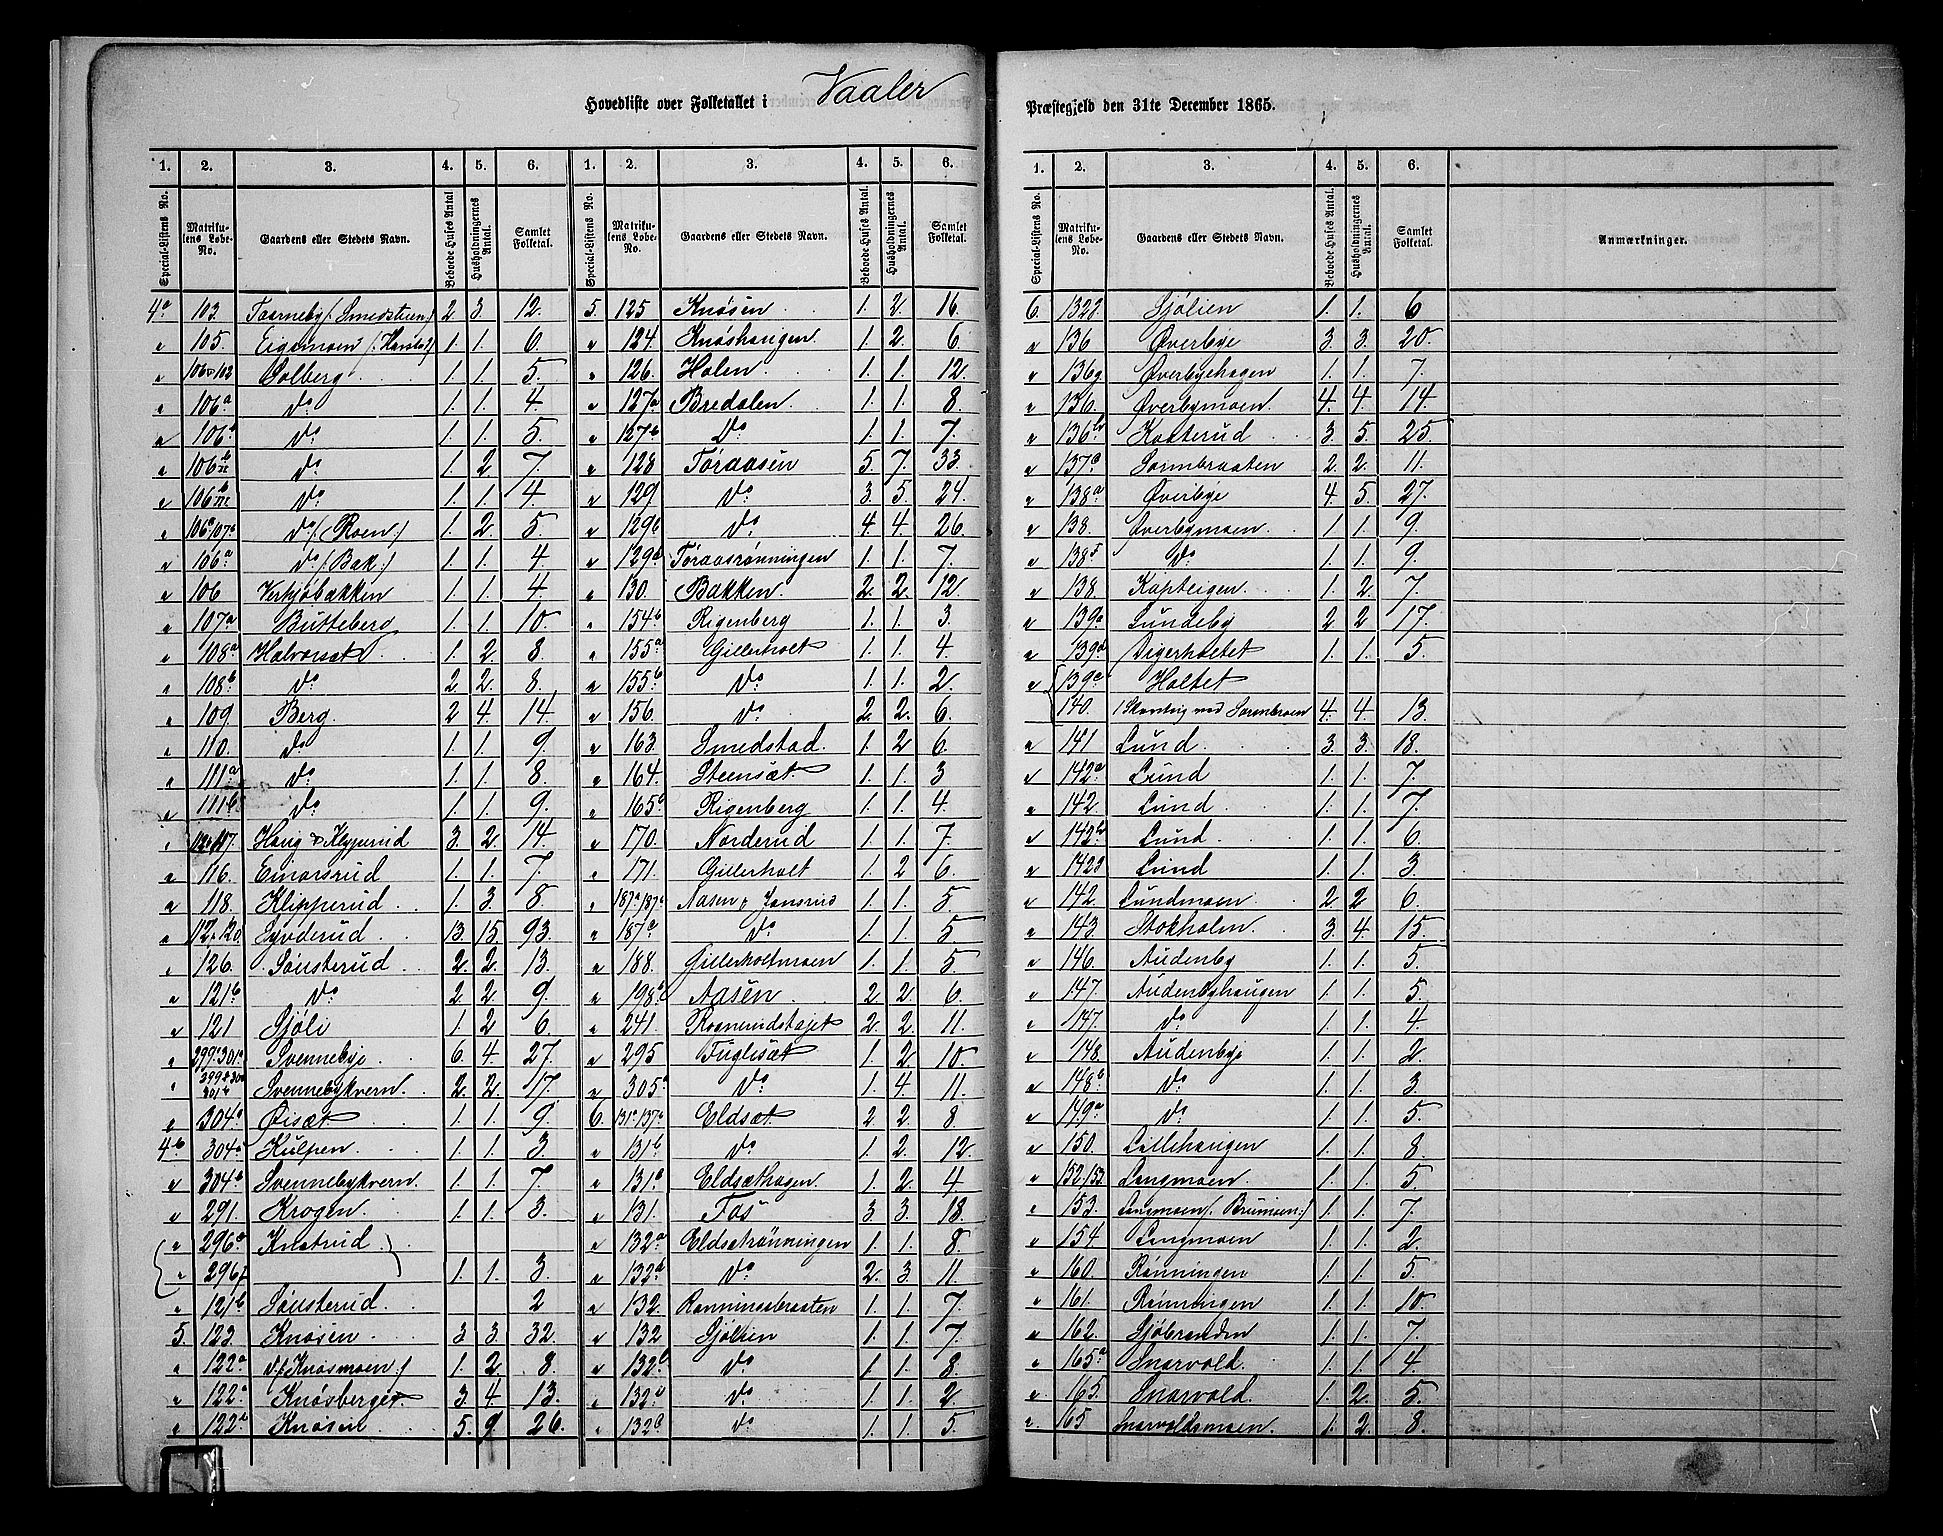 Hovedliste over Folketallet i Vaaler
Præstegjeld den 31te December 1865.
1. 2. 3. 4. 5. 6.
Special-Listens No. Matrikulens Løbe-No. Gaardens eller Stedets Navn. Beboede Huses Antal. Husholdningernes Antal. Samlet Folketal.
4a 103. Taarneby (: Smedstuen :) 2. 3. 12.
" 105. Eigamoen 1. 1. 6.
" Solberg 1. 1. 5.
" 106a do 1. 1. 4.
" 106b do 1. 1. 5.
" 106b do 1. 2. 7.
" 106b do 1. 1. 4.
" do (Roen) 1. 2. 5.
" 106a do (: Bak :) 1. 1. 4.
" 106 1. 1. 4.
" 107a Butteberg 1. 1. 10.
" 108a Halvorsæt 1. 2. 8.
" 108b do 2. 2. 8.
" 109. Berg 2 4. 14.
" 110. do 1. 1. 9.
" 111a do 1. 1. 8.
" 111b do 1. 1. 9.
" Haug & Klypperud 3. 2. 14.
" 116. Einarsrud 1. 1. 7.
" 118. Klipperud 1. 3. 8.
" Eyvderud 13. 15. 93.
" 126. Sønsterud 2. 2. 13.
" 121b do 2. 2. 9.
" 121 Sjøli 1. 2 6.
" Svennebye 6. 4. 27.
" Svennebykvern 2. 2. 17.
" 304a Øisæt 1. 1. 9.
4b 304a Kulpen 1. 1. 3.
" 304b Svennebykvern 1. 1. 7.
" 291. Krogen 1. 1. 3.
" 296a Knatrud
" 296 1. 1. 3.
" 121b Sønsterud 2
5. 123. Knøsen 3. 3. 32.
" 122a do (: Knøsmoen :) 1. 2. 8.
" 122a Knøsberget 3. 4. 13.
" 122a Knøsen 5. 9. 26.
1. 2. 3. 4. 5. 6.
Special-Listens No. Matrikulens Løbe-No. Gaardens eller Stedets Navn. Beboede Huses Antal. Husholdningernes Antal. Samlet Folketal.
5. 125 Knøsen 1. 2. 16.
" 124 Knøshaugen 1. 2. 6.
" 126. Holen 1. 1. 12.
" 127a Bredalen 1. 1. 8.
" 127b Do 1. 1. 7.
" 128 Toraasen 5. 7. 33.
" 129 do 3. 5. 24.
" 129b do 4. 4. 26.
" 129d Toraasrønningen 1. 1. 7.
" 130. Bakken 2. 2. 12.
" 154b Rigenberg 1. 1. 3.
" 155a Gillerholt 1. 1. 4.
" 155b do 1. 1. 2.
" 156. do 2. 2. 6.
" 163. Smedstad 1. 2 6.
" 164. Steensæt 1. 1. 3
" 165b Rigenberg 1. 1. 4.
" 170. Norderud 1. 1. 7.
" 171. Gillerholt 1. 2 6.
" Aasen & Jonsrud 1. 1. 5.
" 187a do 1. 1. 5
" 188. Gillerholtmoen 1. 1. 5.
" 198a Aasen 2. 2. 6.
" 241. 2. 2. 11.
" 295 Fuglsæt 1. 2. 10.
" 305a do 1. 4. 11.
6. Eldsæt 2. 2. 8
" 131b do 1. 2. 12.
" 131b Eldsæthagen 1. 2. 4
" 131. Fos 3. 3. 18.
" 132a Eldsætrønningen 1. 1. 8.
" 132a do 2. 3. 11.
" 132. Rønningsbraaten 1. 1. 7.
" 132 Sjølien 1. 1. 7.
" 132b do 1. 1. 8.
" 132d do 1. 1. 2.
" 132b do 1. 1. 5.
1. 2. 3. 4. 5. 6.
Special-Listens No. Matrikulens Løbe-No. Gaardens eller Stedets Navn. Beboede Huses Antal. Husholdningernes Antal. Samlet Folketal. Anmærkninger.
6. Sjølien 1. 1. 6
" 136 Øverbye 3. 3. 20.
" 136g Øverbyehagen 1. 1. 7.
" 136. Øverbymoen 4. 4. 14.
" 136b Kaaterud 3. 5. 25.
" 137a Sormbraaten 2. 2. 11.
" 138a Øverbye 4. 5. 27.
" 138. Øverbymoen 1. 1. 9.
" 138 do 1. 1. 9.
" 138 Kapteigen 1. 2 7.
" 139a Lundeby 2. 2 17.
" 139d Digerholtet 1. 1. 5.
" 139a Holtet
140. 4. 4. 13.
" 141 Lund 3. 3. 18.
" 142a Lund 1. 1. 7.
" 142. Lund 1. 1. 7.
" 142b Lund 1. 1. 6.
" 142d Lund 1. 1. 3.
" 142. Lundmoen 2 2 6.
" 143. Stokholm 3. 4. 15.
" 146. Audenby 1. 1. 5.
" 147. Audenbyhaugen 1. 1. 5.
" 147. do 1. 1. 4
" 148. Audenbye 1. 1. 2
" 148b do 1. 1. 3
" 149a do 1. 1. 5.
" 150. Lillehaugen 1. 1. 8.
" 152/153 Langmoen 1. 1. 5
" 153. Langmoen (: Brumoen :) 1. 1. 7.
" 154 Langmoen 1. 1. 2.
" 160. Rønningen 1. 1. 5.
" 161. Rønningen 1. 1. 10.
" 162. Sjøbranden 1. 1. 7.
" 165a Snarvold 1. 1. 4
" 165. Snarvold 1. 2. 5.
" 165 Snarvoldsmoen 1. 2. 8.